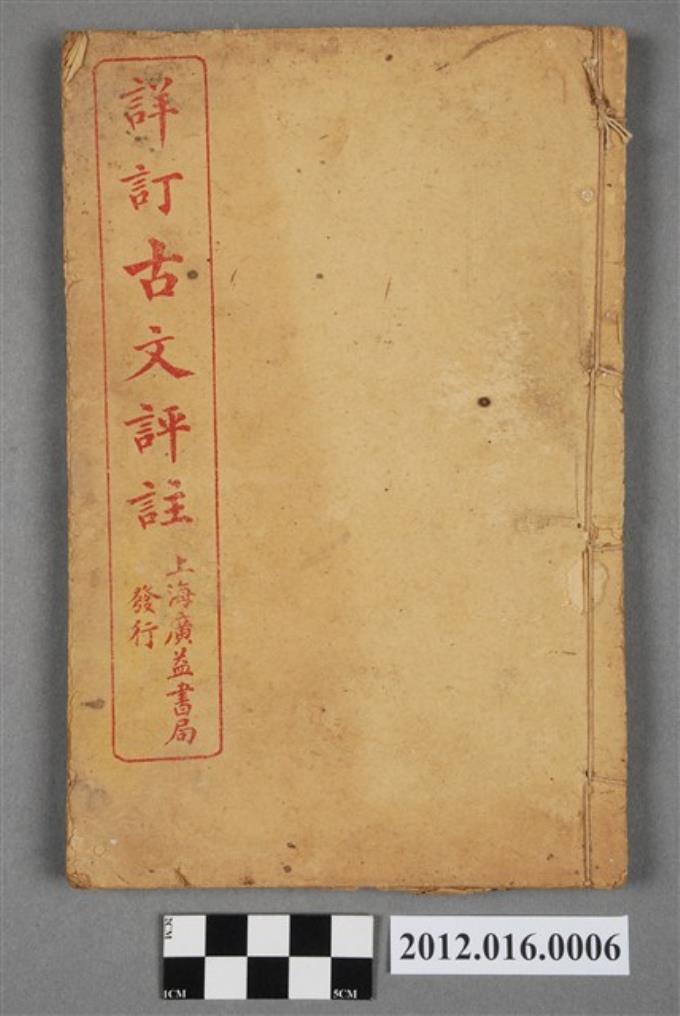 詳訂古文評註
上海廣益書局
發行
2CM
1CM
5CM
2012.016.0006